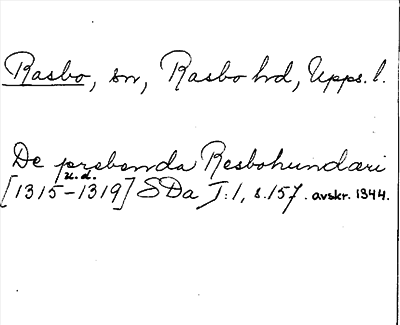 Rasbo, sn, Rasbo hd, Upps. l.
De prebenda Resbohundæri
u.d.
[1315-1319] SDa I:1, s. 157. avskr. 1344.